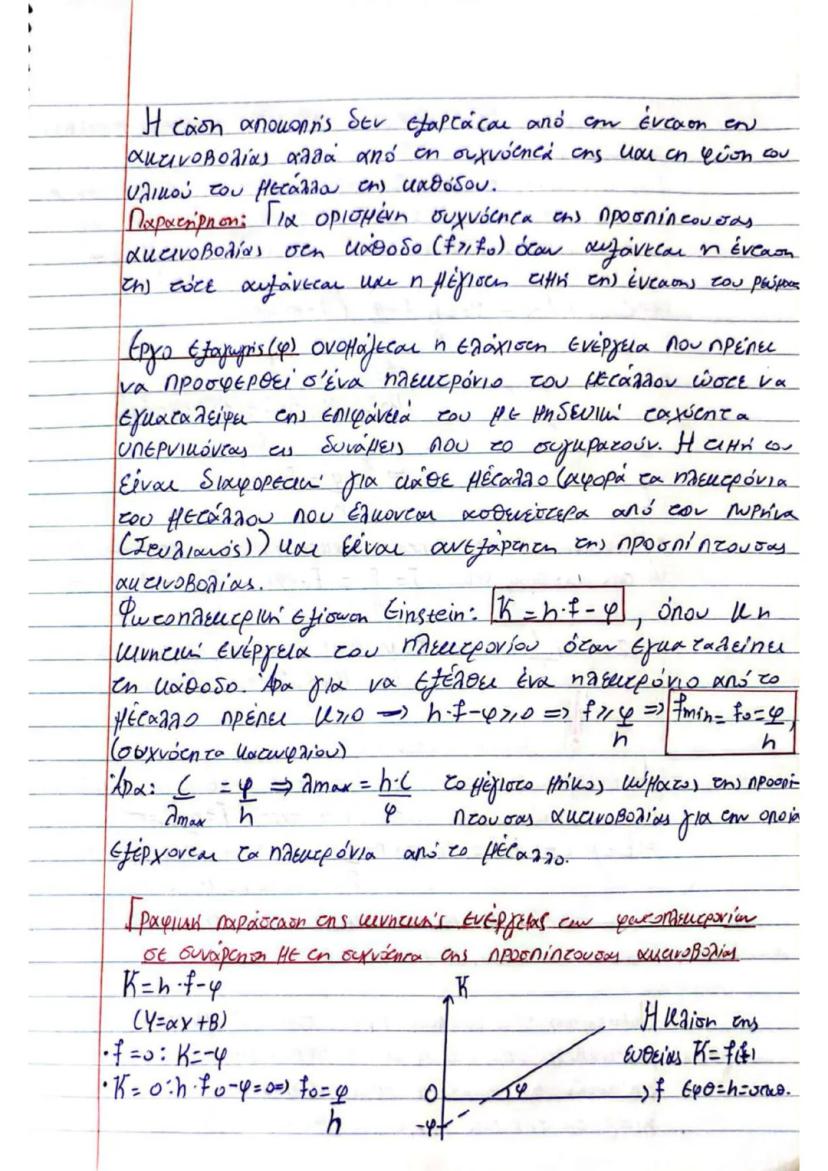 Η τάση αποκοπής δεν εξαρτάται από την ένταση της
ακτινοβολίας αλλά από τη συχνότητά της και τη φύση του
υλικού του μετάλλου της καθόδου.
Παρατήρηση: Για ορισμένη συχνότητα της προσπίπτουσας
ακτινοβολίας στη κάθοδο (f≥f₀) όταν αυξάνεται η ένταση
της τότε αυξάνεται και η μέγιστη τιμή της έντασης του ρεύματος
Έργο εξαγωγής (φ) ονομάζεται η ελάχιστη ενέργεια που πρέπει
να προσφερθεί σ'ένα ηλεκτρόνιο του μετάλλου ώστε να
εγκαταλείψει της επιφάνειά του με μηδενική ταχύτητα
υπερνικόντας τις δυνάμεις που το συγκρατούν. Η τιμή του
είναι διαφορετική για κάθε μέταλλο (αφορά τα ηλεκτρόνια
του μετάλλου που έλκονται ασθενέστερα από τον πυρήνα
και είναι ανεξάρτητη της προσπίπτουσας
ακτινοβολίας.
Φωτοηλεκτρική εξίσωση Einstein: K=h·f-φ, όπου K η
κινητική ενέργεια του ηλεκτρονίου όταν εγκαταλείπει
τη κάθοδο. Άρα για να εξέλθει ένα ηλεκτρόνιο από το
μέταλλο πρέπει K≥0 → h·f-φ≥0 ⇒ f≥φ/h ⇒ fmin=f₀=φ/h,
(συχνότητα κατωφλίου)
Άρα: c/λmax = φ/h ⇒ λmax = h·c/φ το μέγιστο μήκος κύματος της προσπί-
πτουσας ακτινοβολίας για την οποία
εξέρχονται τα ηλεκτρόνια από το μέταλλο.
Γραφική παράσταση της κινητικής ενέργειας των φωτοηλεκτρονίων
σε συνάρτηση με τη συχνότητα της προσπίπτουσας ακτινοβολίας
K=h·f-φ
(Y=αx+B)
·f=0: K=-φ
·K=0: h·f₀-φ=0⇒ f₀=φ/h
K
0
φ
f
-φ
Η κλίση της
ευθείας K=f(f)
εφθ=h=σταθ.